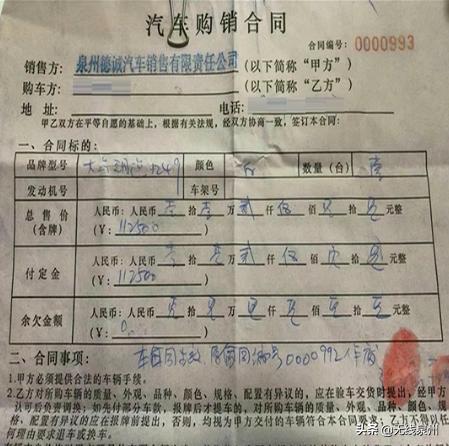 汽车购销合同
合同编号：0000993
销售方：泉州德诚汽车销售有限责任公司（以下简称“甲方”）
购车方：（以下简称“乙方”）
地 址：电话：
甲乙双方在平等自愿的基础上，根据有关法规，经双方协商一致，签订本合同：
一、合同标的：
品牌型号 大 颜色 白 数量（台） 壹
发动机号 车架号
总售价（含牌） 人民币：人民币 壹 拾 壹 万 贰 仟 伍 佰 拾 元整
（￥：112500）
付定金 人民币：人民币 壹 拾 壹 万 贰 仟 伍 佰 拾 元整
（￥：112500）
余欠金额 人民币：人民币 拾 万 仟 佰 拾 元整
（￥：0）
二、合同事项：车合同 原合同编号0000992作废
1.甲方必须提供合法的车辆手续。
2.乙方对所购车辆的质量、外观、品种、颜色、规格、配置有异议的，应在验车交货时提出，经甲方
认可后免责调换；如先付部分车款，报牌后才提车的，对所购车辆的质量、外观、品种、颜色、规
格、配置有异议的应在报牌前提出，否则，均视为甲方交付的车辆符合本合同
何理由要求退车或换车。
头条 @无线泉州